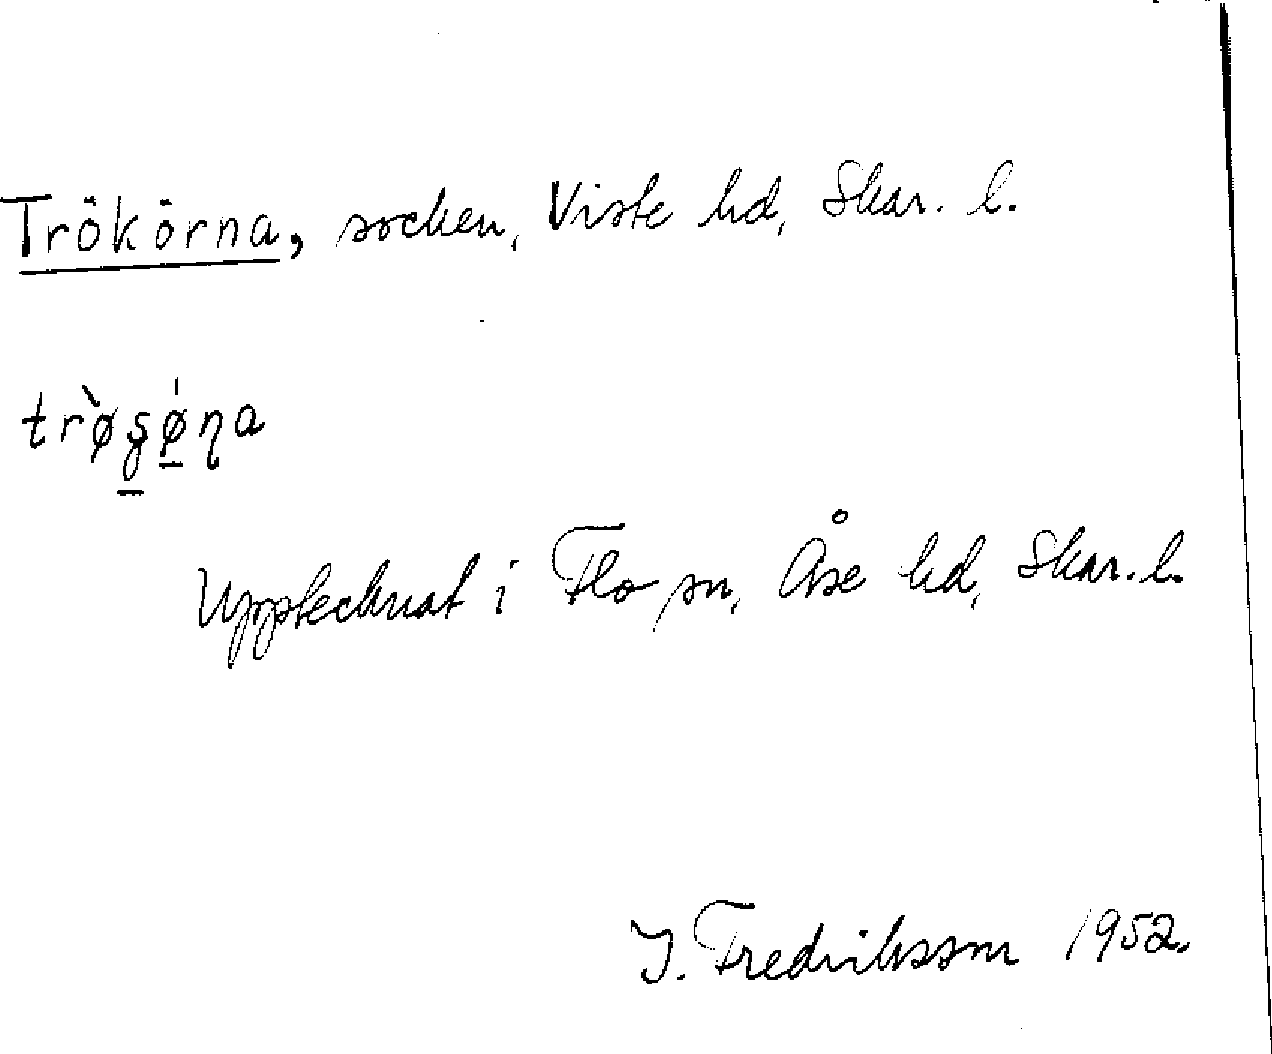 Trökörna, socken, Viste hd, Skar. l.
Upptecknat i Flo sn, Åse hd, Skar. l.
J. Fredriksson 1952.